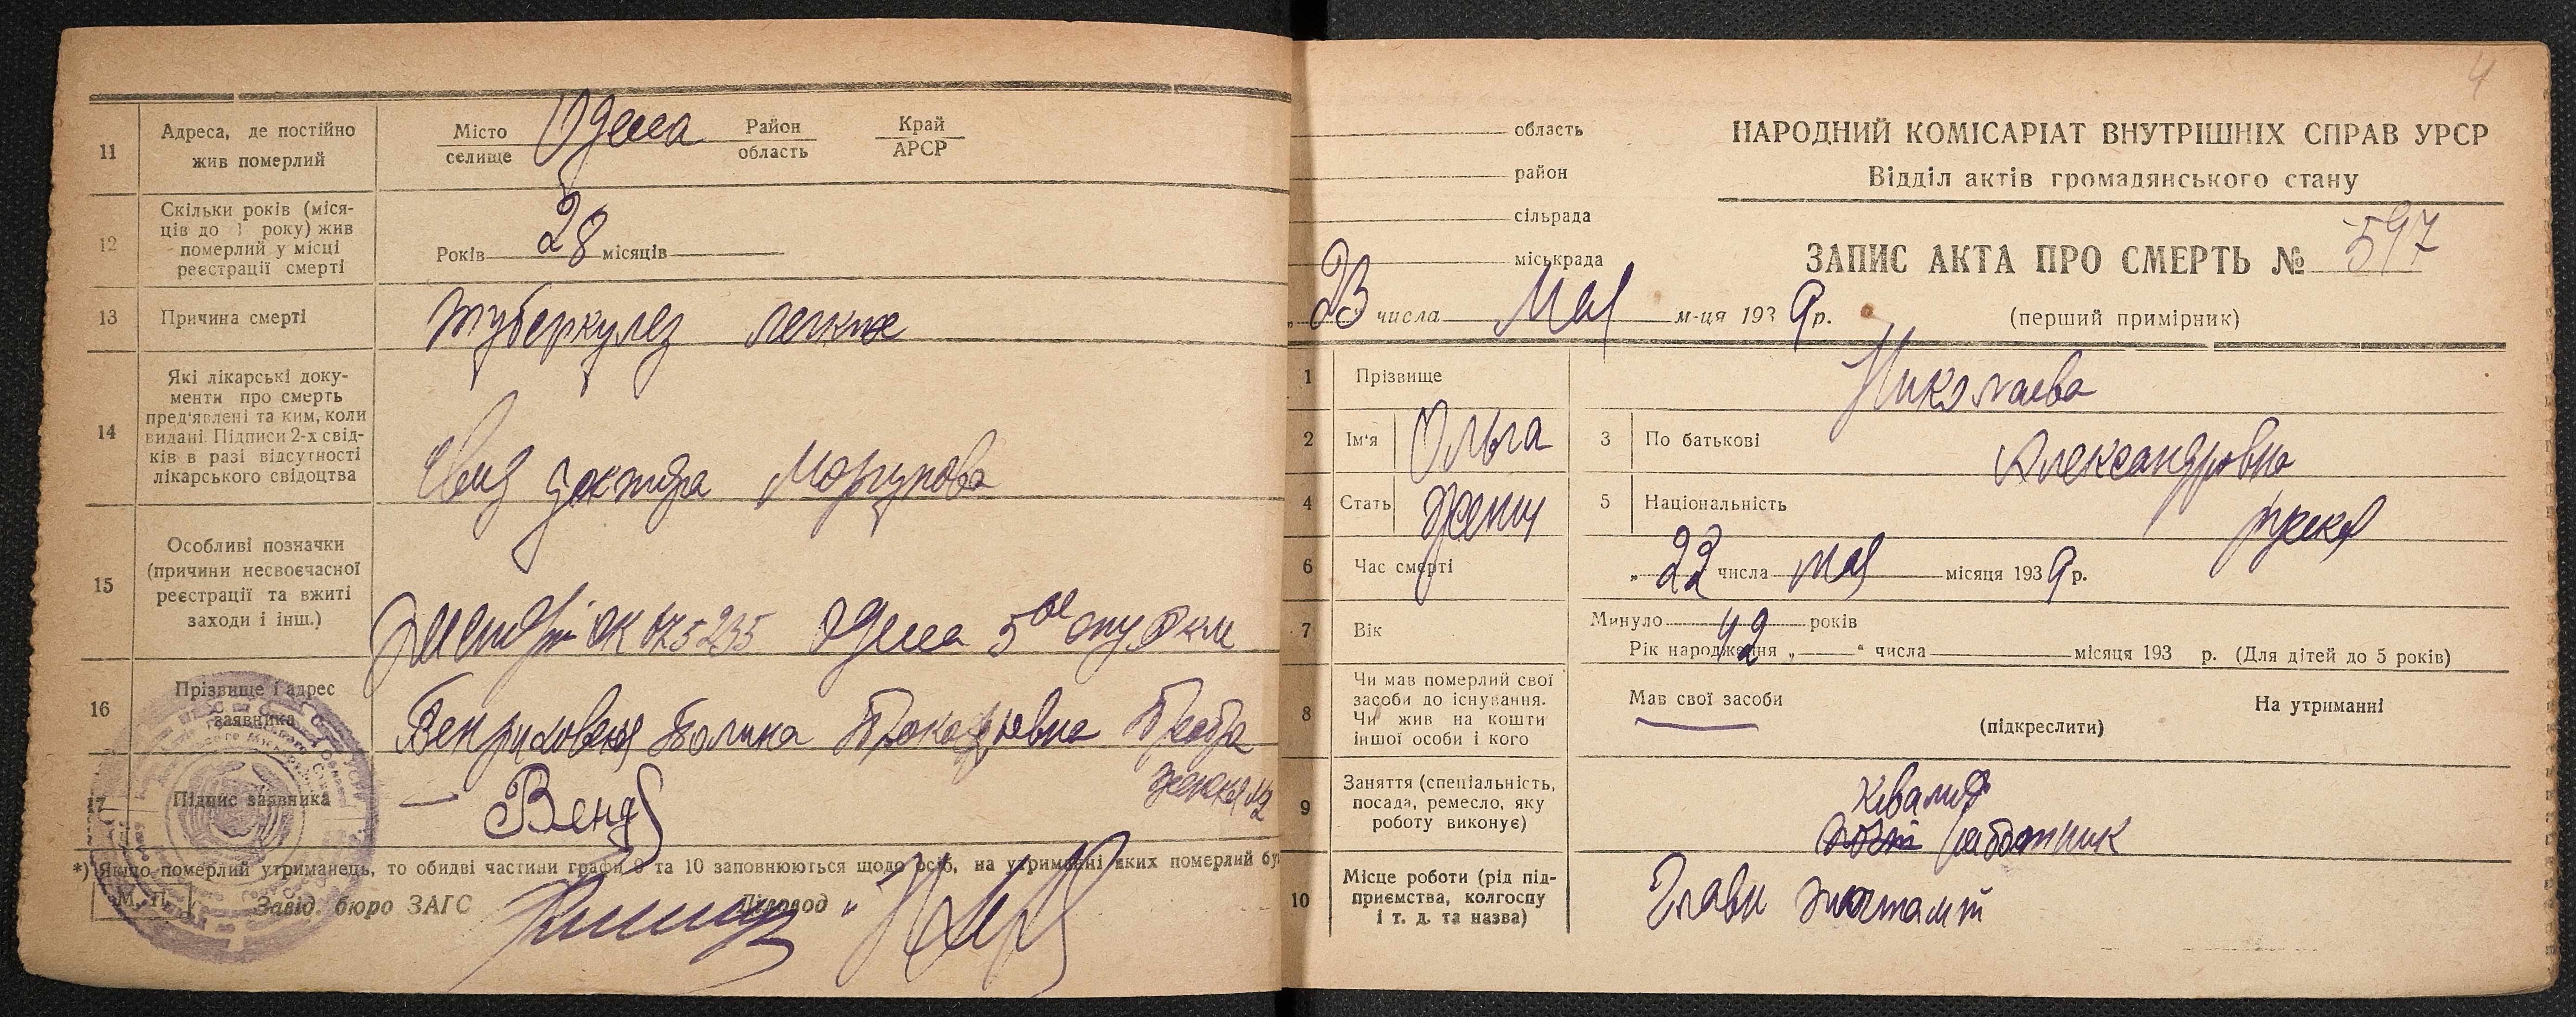 11
Адреса, де постійно
жив померлий
Місто
селище
Одесса
Район
область
Край
АРСР
12
Скільки років (міся-
ців до 1 року) жив
померлий у місці
реєстрації смерті
Років 28 місяців
13
Причина смерті
туберкулез легких
14
Які лікарські доку-
менти про смерть
пред'явлені та ким, коли
видані. Підписи 2-х свід-
ків в разі відсутності
лікарського свідоцтва
доктора
15
Особливі позначки
(причини несвоєчасної
реєстрації та вжиті
заходи і інш.)
Одесса 5
16
Прізвище і адрес
заявника
Полина
17
Підпис заявника
— Венд
*) Якщо померлий утриманець, то обидві частини графи 9 та 10 заповнюються щодо осіб, на утриманні яких померлий бу
М. П.
Завід. бюро ЗАГС
Діловод
4
область
район
сільрада
міськрада
НАРОДНИЙ КОМІСАРІАТ ВНУТРІШНІХ СПРАВ УРСР
Відділ актів громадянського стану
ЗАПИС АКТА ПРО СМЕРТЬ № 597
„23 числа Мая м-ця 1939 р.
(перший примірник)
1
Прізвище
Николаева
2
Ім'я
Ольга
3
По батькові
Александровна
4
Стать
женщ
5
Національність
русская
6
Час смерті
„ 22 числа мая місяця 1939 р.
7
Вік
Минуло 42 років
Рік народження „ “ числа місяця 193 р. (Для дітей до 5 років)
8
Чи мав померлий свої
засоби до існування.
Чи жив на кошти
іншої особи і кого
Мав свої засоби
(підкреслити)
На утриманні
9
Заняття (спеціальність,
посада, ремесло, яку
роботу виконує)
квалиф
работник
10
Місце роботи (рід під-
приємства, колгоспу
і т. д. та назва)
Главн почтамт